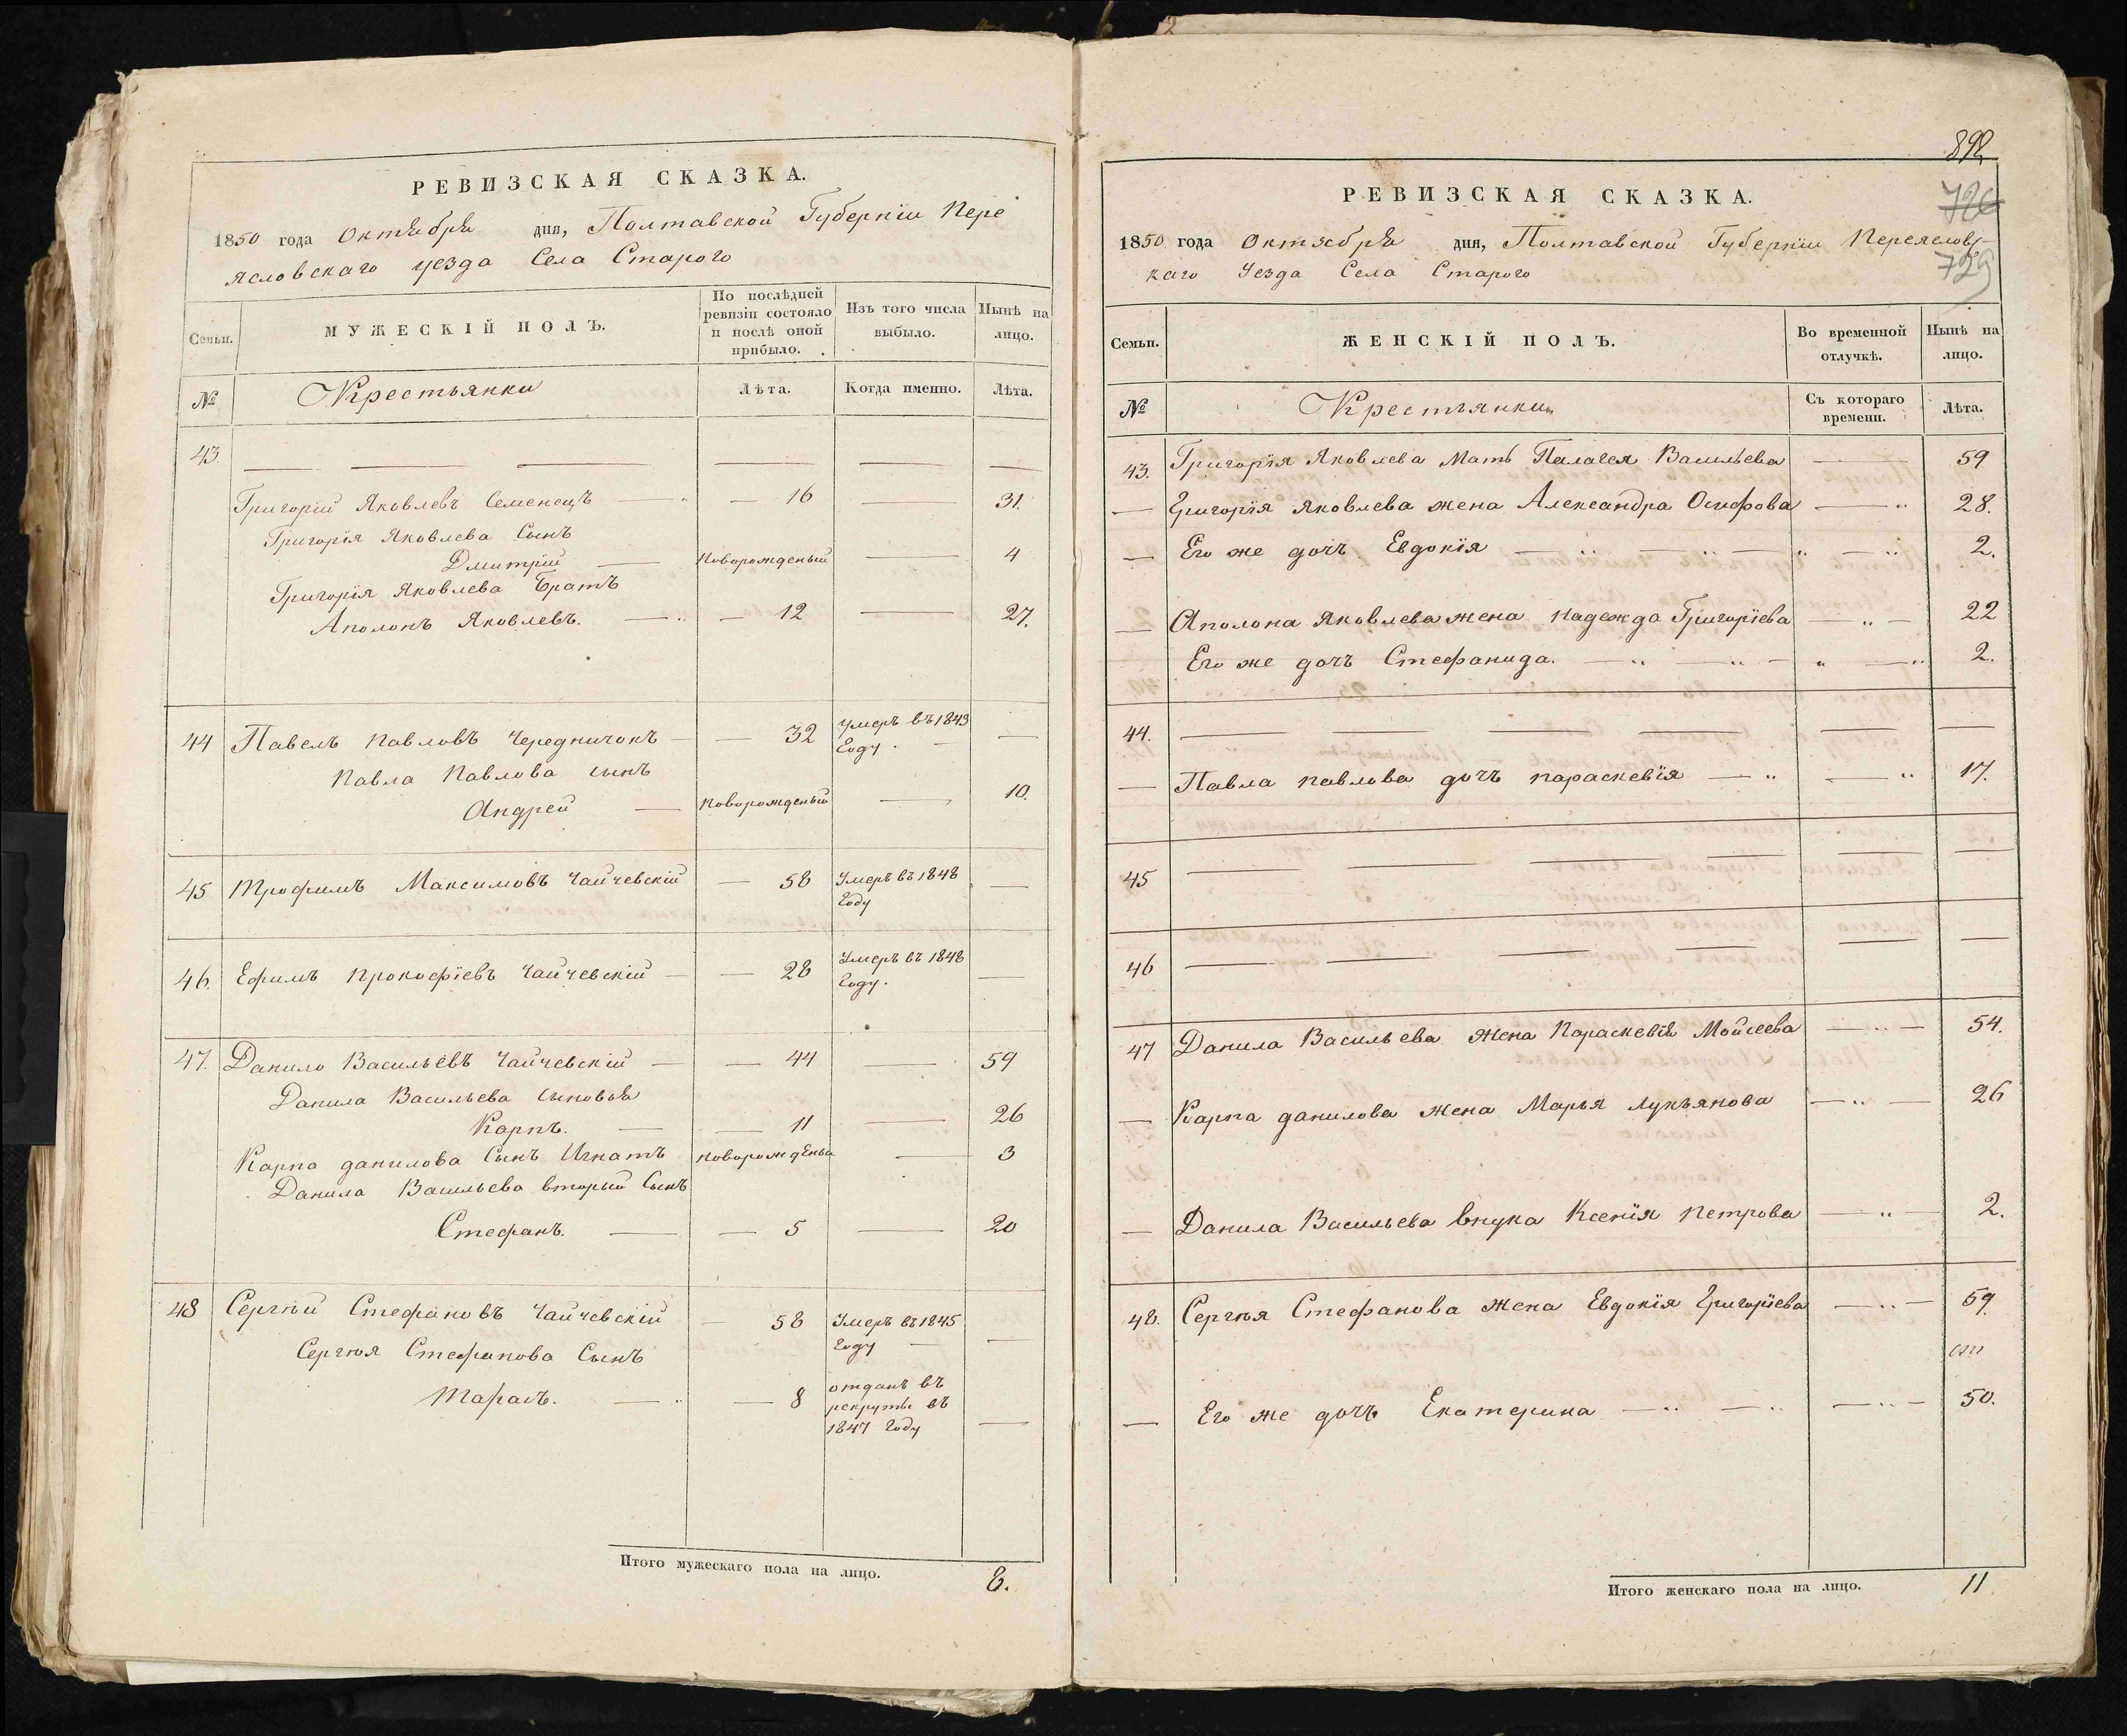 РЕВИЗСКАЯ СКАЗКА.
1850 года Октября дня, Полтавской Губернiи Пере
яcловскаго уезда Села Старого
Семьи.
МУЖЕСКIЙ ПОЛЪ.
По послѣдней ревизiи состояло и послѣ оной прибыло.
Изъ того числа выбыло.
Нынѣ на лицо.
№
Крестьянки
Лѣта.
Когда именно.
Лѣта.
43.
Григорiй Яковлевъ Семенецъ — 16 — 31.
Григорiя Яковлева Сынъ
Дмитрiй — Новорожденый — 4
Григорiя Яковлева Братъ
Аполонъ Яковлевъ. — 12 — 27.
44 Павелъ Павловъ Чередничокъ — 32 Умеръ въ 1843 Году. —
Павла Павлова сынъ
Андрей — Новорожденый — 10.
45 Трофимъ Максимовъ Чайчевскiй — 58 Умеръ въ 1848 Году —
46. Ефимъ Прокофiевъ Чайчевскiй — 28 Умеръ въ 1848 Году. —
47. Данило Васильевъ Чайчевскiй — 44 — 59
Данила Васильева сыновья
Карпъ. — 11 — 26
Карпа данилова Сынъ Игнатъ новорожденый — 3
Данила Васильева вторый Сынъ
Стефанъ. — 5 — 20
48 Сергѣй Стефановъ Чайчевскiй — 58 Умеръ въ 1845 Году —
Сергѣя Стефанова Сынъ
Тарасъ. — 8 отданъ въ рекруты въ 1847 Году —
Итого мужескаго пола на лицо. 8.
892
726
729
РЕВИЗСКАЯ СКАЗКА.
1850 года Октября дня, Полтавской Губернiи Переяслов-
каго Уезда Села Старого
Семьи.
ЖЕНСКIЙ ПОЛЪ.
Во временной отлучкѣ.
Нынѣ на лицо.
№
Крестьянки
Съ котораго времени.
Лѣта.
43. Григорiя Яковлева Мать Палагея Васильева — 59
— Григорiя Яковлева жена Александра Осифова — 28.
— Его же дочъ Евдокiя — 2.
— Аполона Яковлева жена Надежда Григорiева — 22
Его же дочъ Стефанида. — 2.
44.
— Павла Павлова дочъ Параскевiя — 17.
45
46
47 Данила Васильева Жена Параскевiя Мойсеева — 54.
— Карпа данилова Жена Марья Лукьянова — 26
— Данила Васильева внука Ксенiя Петрова — 2.
48. Сергѣя Стефанова Жена Евдокiя Григорiева — 59.
— Его же дочъ Екатерина — 50.
Итого женскаго пола на лицо. 11